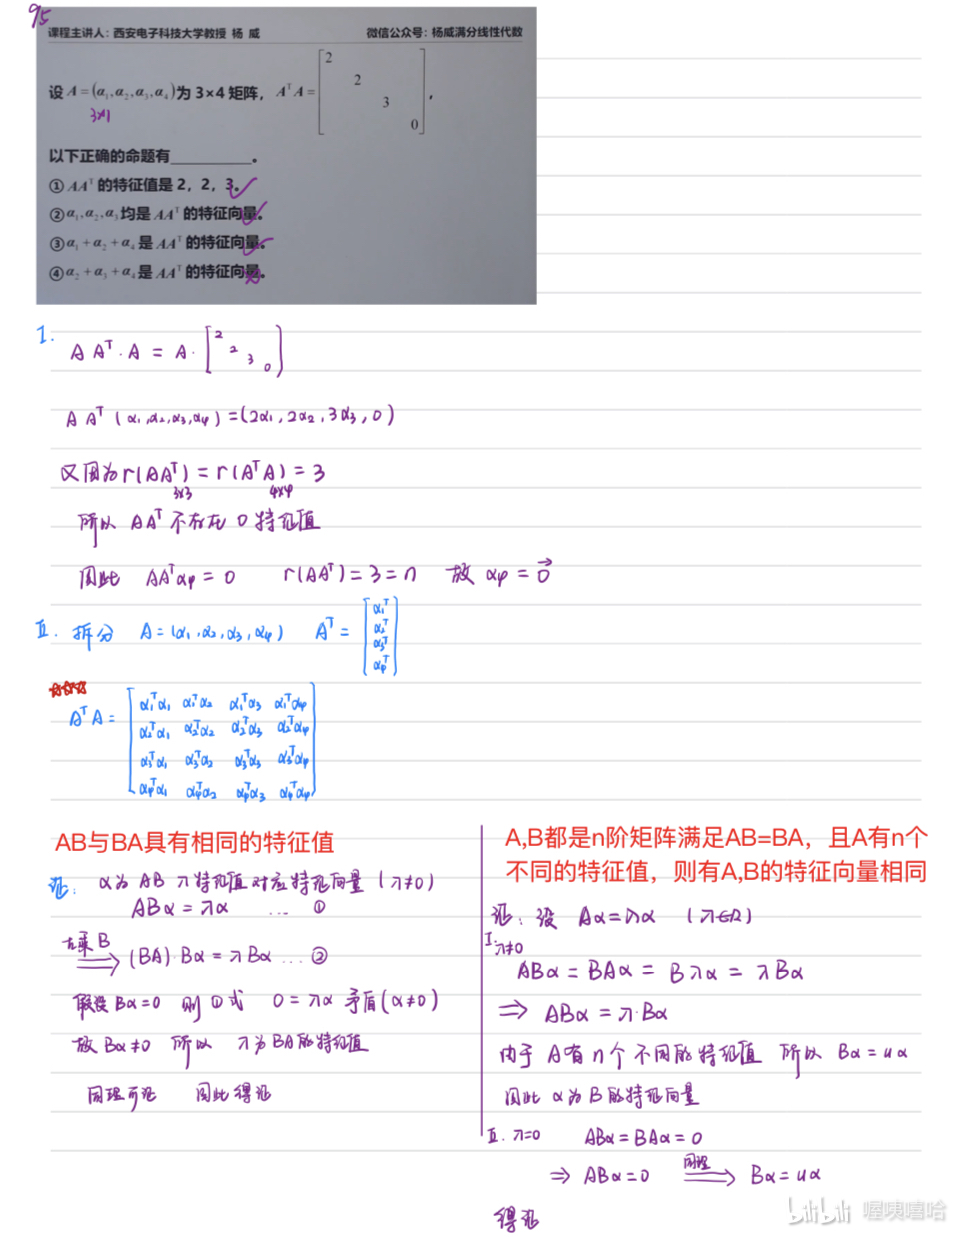 95
课程主讲人：西安电子科技大学教授 杨 威 微信公众号：杨威满分线性代数
设 A=(α₁,α₂,α₃,α₄)为 3×4 矩阵，AᵀA= [2 2 3 0]，
3×1
以下正确的命题有________。
①AAᵀ的特征值是 2，2，3。✓
②α₁,α₂,α₃均是 AAᵀ的特征向量。✓
③α₁+α₂+α₄是 AAᵀ的特征向量。✓
④α₂+α₃+α₄是 AAᵀ的特征向量。×
I.
AAᵀ·A = A·[2 2 3 0]
AAᵀ(α₁,α₂,α₃,α₄)=(2α₁,2α₂,3α₃,0)
又因为r(AAᵀ)=r(AᵀA)=3
3×3 4×4
所以 AAᵀ不存在 0 特征值
因此 AAᵀα₄=0 r(AAᵀ)=3=n 故 α₄=0⃗
II. 拆分 A=(α₁,α₂,α₃,α₄) Aᵀ= [α₁ᵀ α₂ᵀ α₃ᵀ α₄ᵀ]
AᵀA= [α₁ᵀα₁ α₁ᵀα₂ α₁ᵀα₃ α₁ᵀα₄
α₂ᵀα₁ α₂ᵀα₂ α₂ᵀα₃ α₂ᵀα₄
α₃ᵀα₁ α₃ᵀα₂ α₃ᵀα₃ α₃ᵀα₄
α₄ᵀα₁ α₄ᵀα₂ α₄ᵀα₃ α₄ᵀα₄]
AB与BA具有相同的特征值
证: α为 AB λ特征值对应特征向量 (λ≠0)
ABα=λα ... ①
左乘B ⟹ (BA)·Bα=λBα ... ②
假设Bα=0 则①式 0=λα 矛盾(α≠0)
故 Bα≠0 所以 λ为BA的特征值
同理可证 因此得证
A,B都是n阶矩阵满足AB=BA，且A有n个
不同的特征值，则有A,B的特征向量相同
证: 设 Aα=λα (λ∈R)
I. λ≠0
ABα=BAα=Bλα=λBα
⟹ ABα=λ·Bα
由于 A有n个不同的特征值 所以 Bα=uα
因此 α为B的特征向量
II. λ=0 ABα=BAα=0
⟹ ABα=0 同理 ⟹ Bα=uα
得证
bilibili 喔咦嘻哈